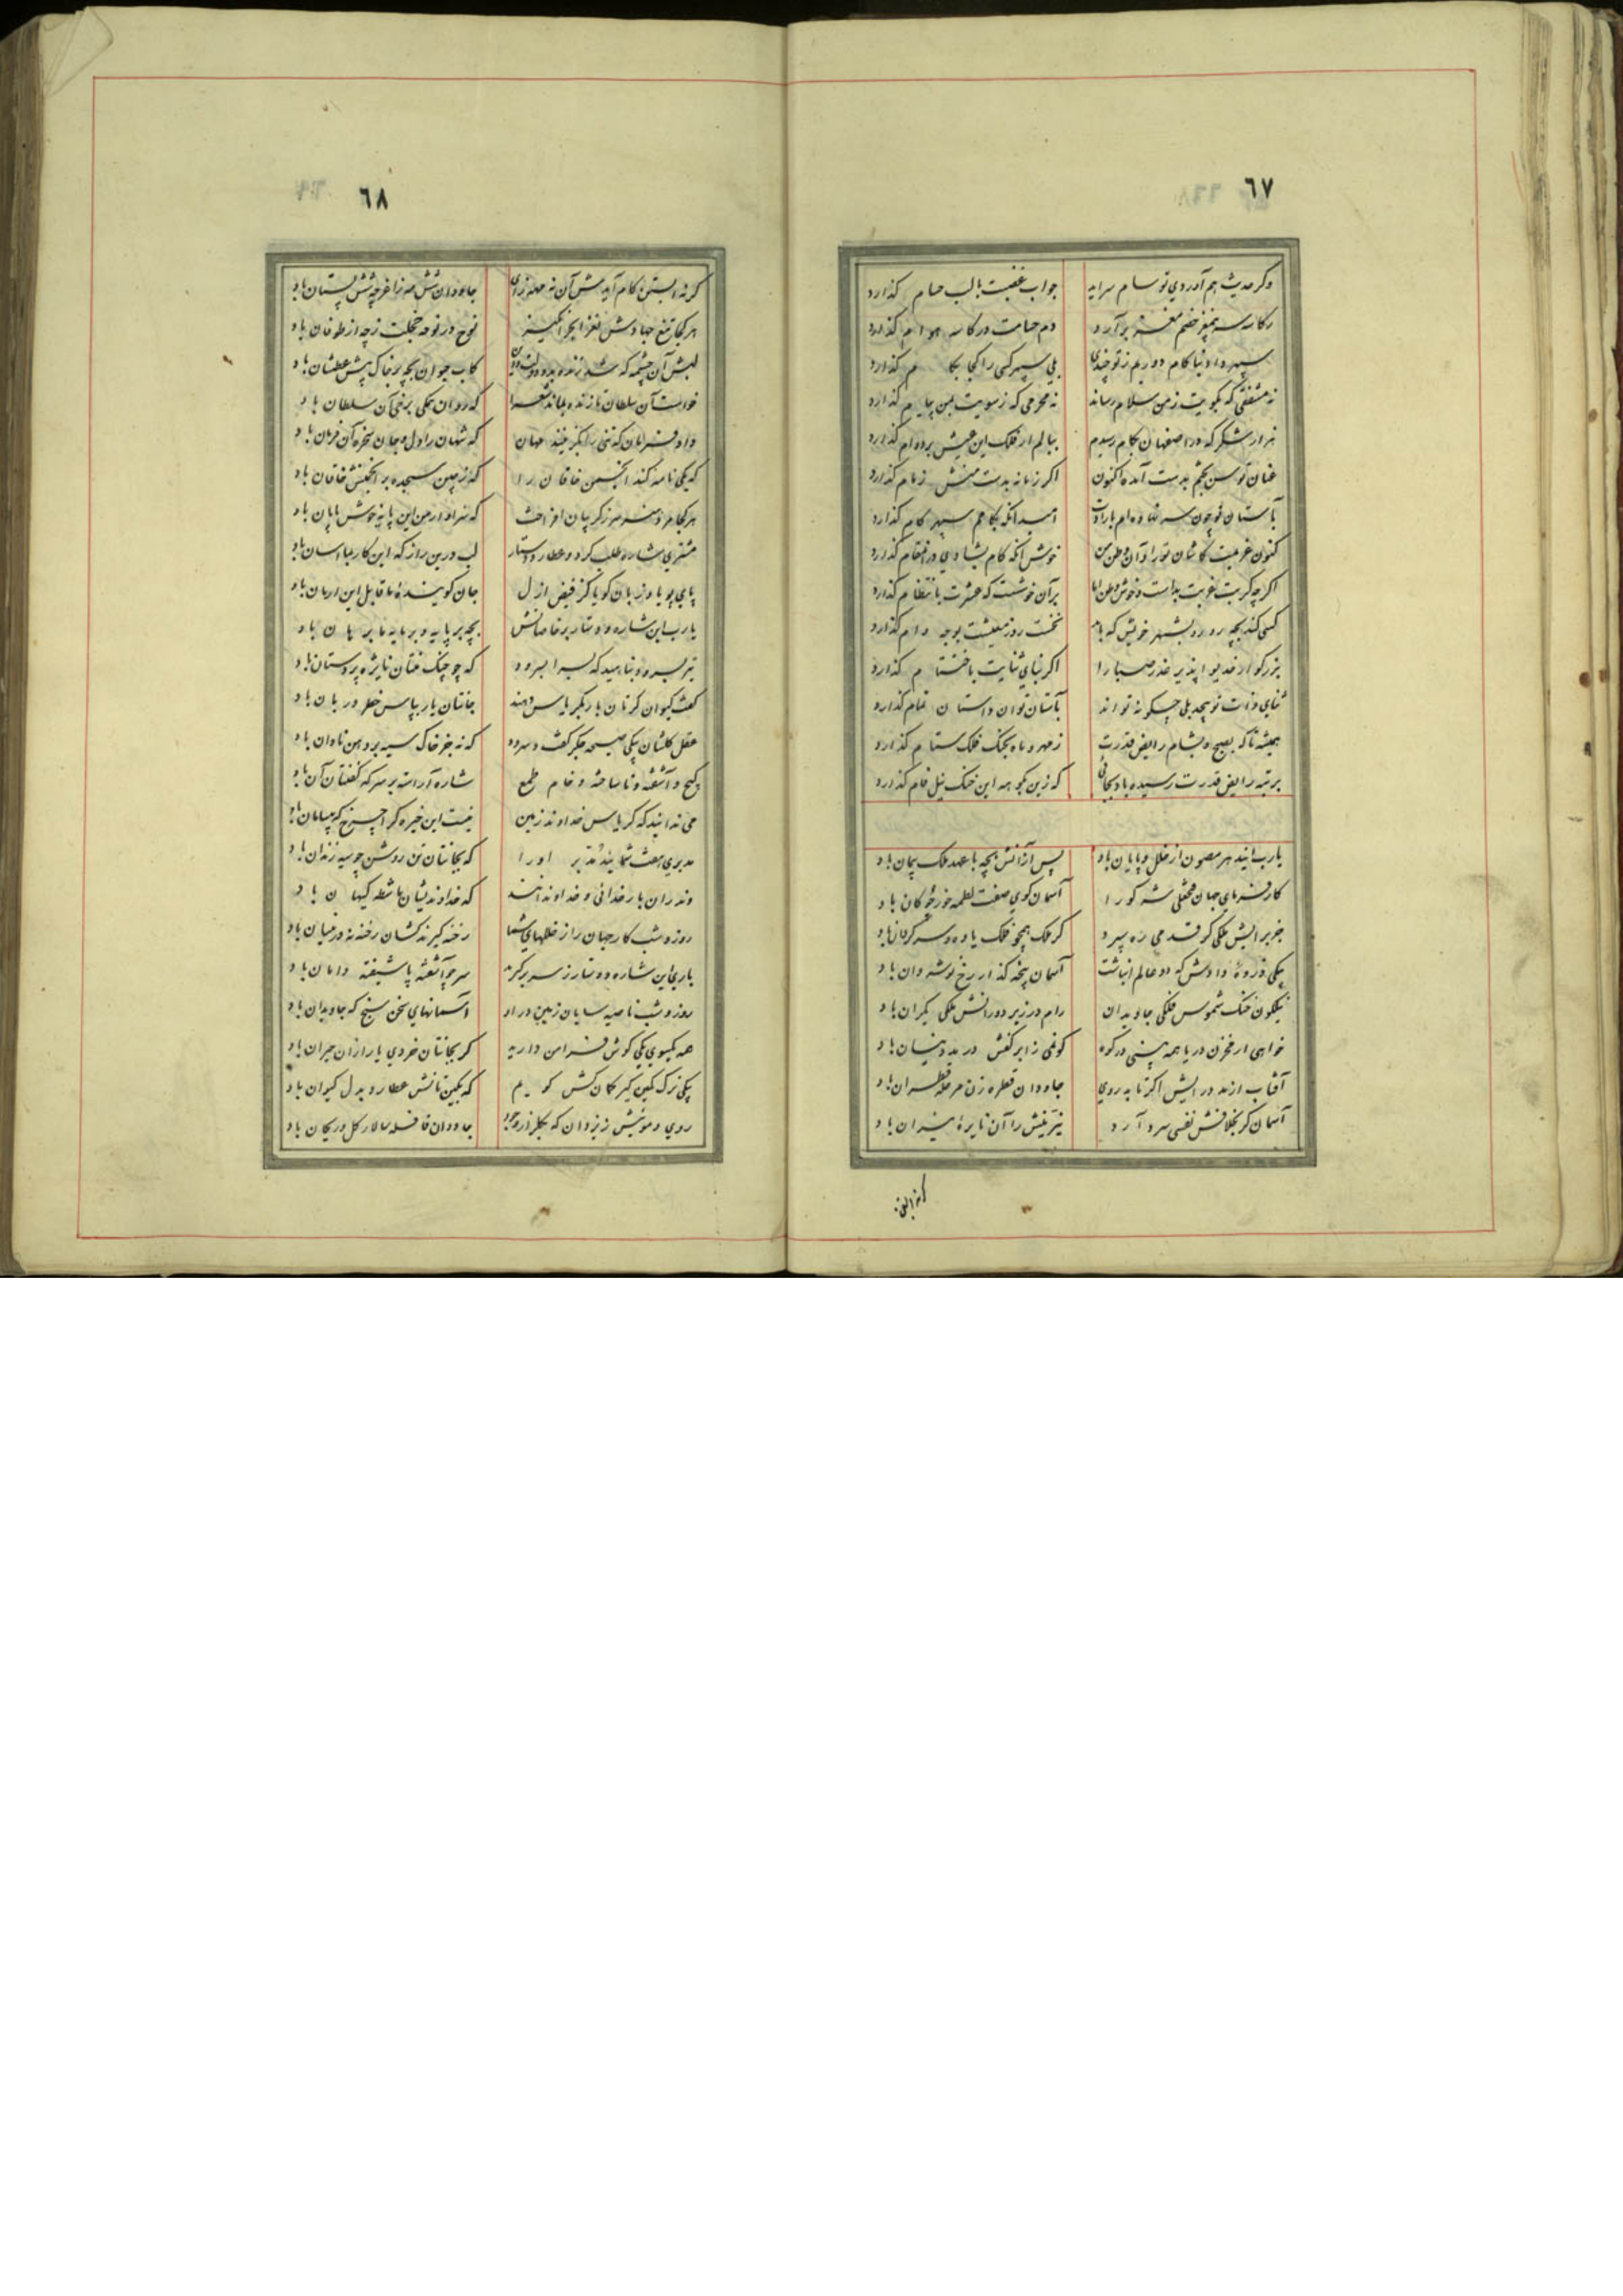 ٦٧
وگر حدیث هم آوردی تو سام سراید جواب غضبت بالب حسام گذارد
رکاب سر بمغز خصم مغز برآرد دم حسامت در کاسه هوام گذارد
سپهر داد دنیا کام دورم ز تو چندی بلی سپهر کسی را کجا بکام گذارد
نه مشفقی که بکویت ز من سلام رساند نه محرمی که ز سویت بمن پیام گذارد
هزار شکر که در اصفهان بکام رسیدم ببالم ار فلک این عیش بردوام گذارد
عنان توسن بختم بدست آمده اکنون اگر زمانه بدست منش زمام گذارد
بآستان تو چون سر نهاده ام بارادت امید آنکه بکامم سپهر کام گذارد
کنون عزیمت کاشان تو را و آن وطن من خوش آنکه کام بشادی در آن مقام گذارد
اگر چه کربت غربت بد است و خوش وطن اما بر آن خوشست که عشرت بانتظام گذارد
کسی کند بچه رو رو بشهر خویش که باید نخست روز معیشت بوجه وام گذارد
بزرگوار خدیوا پذیر عذر صبا را اگر بنای ثنایت باختتام گذارد
ثنای ذات تو بیحد بلی چگونه تواند بآستان تو آن داستان تمام گذارد
همیشه تا که بصبح و بشام رایض قدرت ز مهر و ماه بخنگ فلک ستام گذارد
برتبه رایض قدرت رسیده باد بجائی که زین بکوهه این خنگ نیل فام گذارد
یارب ایندهر مصون از خلل و پایان باد پس از آنش بچه با عهد ملک پیمان باد
کارفرمای جهان فتحعلی شه کو را آسمان گوی صفت لطمه خور چوگان باد
جز برایش ملکی گر قدمی ره سپرد گر ملک همچو فلک یاوه و سرگردان باد
یکی ذروه دادش که دو عالم انباشت آسمان پخته گذار رخ نوشروان باد
نیلگون خنگ شموس فلکی جاویدان رام در زیر دورانش ملکی یکران باد
خواهی ار مخزن دریا همه بینی در کوه گو نمی ز ابر کفش در مه نیسان باد
آفتاب از مدد رایش اگر تابد روی جاودان قطره زن مرحله قطران باد
آسمان گر بخلافش نفسی سرد آرد تیر تیغش را آن نایره میزان باد
گر نه آبستن
٦٨
گر نه آبستن کام آیدش آن نه مهد زرای جاودان شش مه زا غرچه شش پستان باد
هر کجا تیغ جهادش نغز ابحر انگیزد نوح در نوحه خجلت ز چه از طوفان باد
لبش آن چشمه که شد زنده بدو دولت و دین کاب حیوان بچه بر خاک پیش عطشان باد
خواست آن سلطان تا زنده بماند شعرا که روان همگی برخی آن سلطان باد
داد فرمان که تنی را بگزینند مهان که شهان را دل و جان سخره آن فرمان باد
که یکی نامه کند انجمن خاقان را که زمین سجده بر انجمنش خاقان باد
هر کجا مرد هنر سر ز گریبان افراخت که سزاوار من این پایه خوش پایان باد
مشتری شاره طلب کرد و عطارد دستار لب در این راز که این کار بما آسان باد
پای پویا و زبان گویا کز فیض ازل جان گوینده ما قابل این ارمان باد
یارب این شاره و دستار بر خاصانش بچه بر پایه و بر مایه ما برهان باد
تیر بسرود بناهید که بسرا بسرود که چو چنگ فتان نایژه پردستان باد
گفت کیوان گرتان بار بگریاس دهند جانتان یار بپاس خطر دربان باد
عقل کلشان یکی صیحه جگر گفت و سرود که نه جز خاک سیه بر دهن نادان باد
گیج و آشفته و ناساخته و خام طمع شاره آراسته بر سر که گفتنان آن باد
می ندانید که گریاس خداوند زمین نیست این خیره گر اچرخ که بی‌سامان باد
مدبری هفت شمایید مدبر او را که بجانتان تن روشن چو سیه زندان باد
وندر آن بار خدائی و خداوندانند که خداوندیشان ماشطه کیهان باد
روز و شب کار جهان را ز خللهای شما رخنه گیرند کشان رخنه نه در بنیان باد
باری این شاره و دستار ز سر برگیرید سر چو آشفته پا شیفته دامان باد
روز و شب ناصیه سایان زمین در او آسمانهای سخن سنج که جاویدان باد
همه یکسوی یکی گوش فرا من دارید گر بجانتان خردی یار از آن حیران باد
یکی ترک کمین گیر کمان کش گویم که بکین تانش عطارد بدل کیوان باد
روی و مویش ز یزدان که بگلزار وجود جاودان قافله سالار گل و ریحان باد